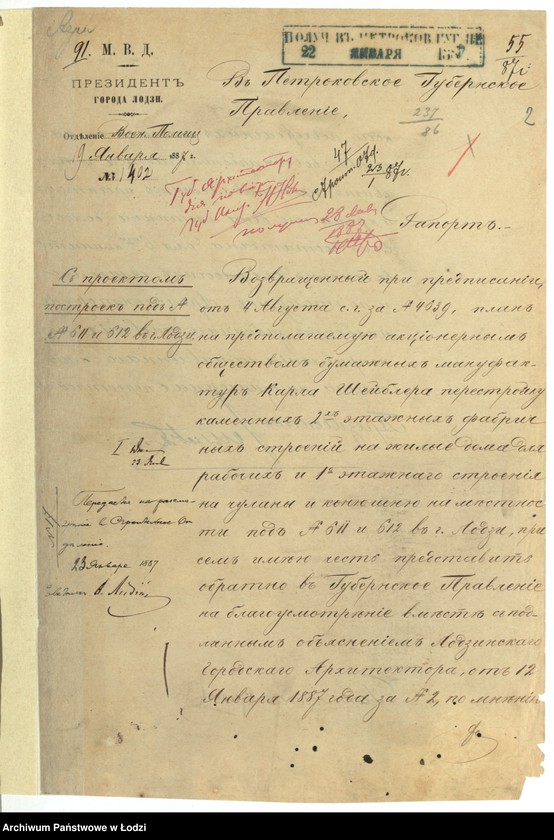 91.
М. В. Д.
ПРЕЗИДЕНТЪ
ГОРОДА ЛОДЗИ.
Отдѣленіе Воен. Полиц.
19 Января 1887 г.
№ 1402
ПОЛУЧ. ВЪ ПЕТРОКОВ. ГУБ. ПР.
22 ЯНВАРЯ 1887
55
87 г.
2
Въ Петроковское Губернское
Правленіе,
237
86
47
23/1 87 г.
Рапортъ.
Съ проектомъ
построекъ подъ №
№ 611 и 612 въ г. Лодзи.
Возвращенный при предписаніи,
отъ 4 Августа с. г. за № 4639, планъ
на предполагаемую акціонернымъ
обществомъ бумажныхъ мануфак-
туръ Карла Шейблера перестройку
каменныхъ 2хъ этажныхъ фабрич
ныхъ строеній на жилые дома для
рабочихъ и 1о этажнаго строенія
на чуланы и конюшню на мѣстнос
ти подъ № 611 и 612 въ г. Лодзи, при
семъ имѣю честь представить
обратно въ Губернское Правленіе
на благоусмотрѣніе вмѣстѣ съ по
даннымъ объясненіемъ Лодзинскаго
Городскаго Архитектора, отъ 12
Января 1887 года за № 2, по мнѣнію
23 Января 1887
Archiwum Państwowe w Łodzi